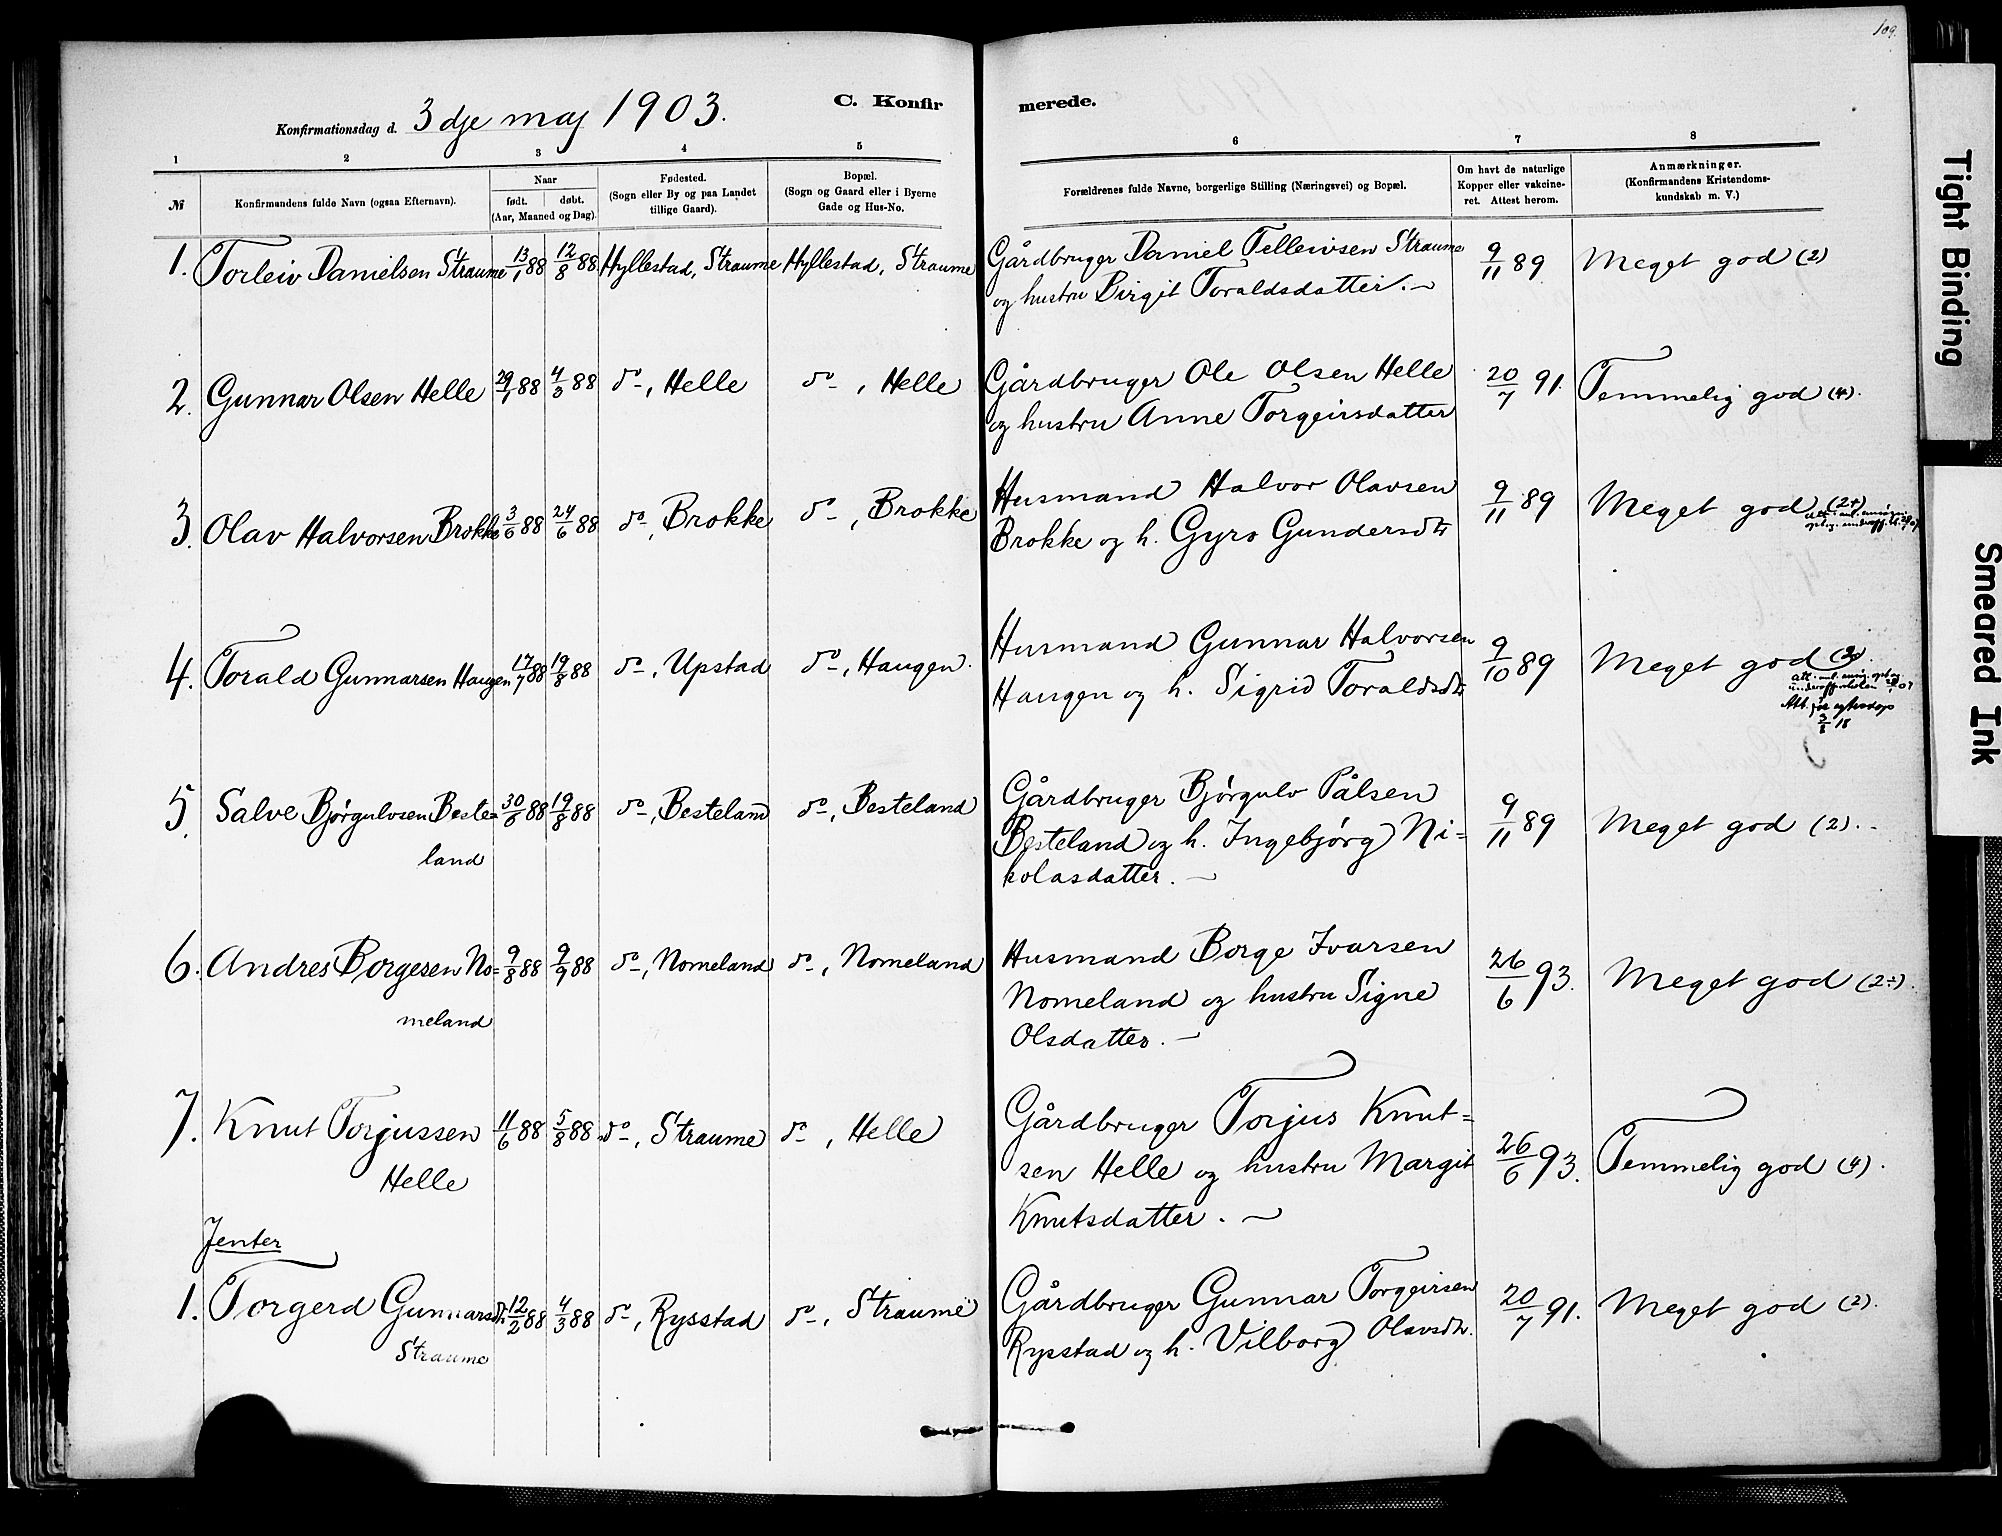 109.
Konfirmationsdag d. 3dje maj 1903.
C. Konfirmerede.
1 2 3 4 5 6 7 8
№
Konfirmandens fulde Navn (ogsaa Efternavn).
Naar
født. døbt.
(Aar, Maaned og Dag).
Fødested.
(Sogn eller By og paa Landet
tillige Gaard).
Bopæl.
(Sogn og Gaard eller i Byerne
Gade og Hus-No.
Forældrenes fulde Navne, borgerlige Stilling (Næringsvei) og Bopæl.
Om havt de naturlige
Kopper eller vakcine-
ret. Attest herom.
Anmærkninger.
(Konfirmandens Kristendoms-
kundskab m. V.)
1. Torleiv Danielsen Straume 13/1 88 12/8 88 Hyllestad, Straume Hyllestad, Straume Gårdbruger Daniel Telleivsen Straume 9/11 89 Meget god (2)
og hustru Birgit Toraldsdatter. —
2. Gunnar Olsen Helle 29/1 88 4/3 88 do, Helle do, Helle Gårdbruger Ole Olsen Helle 20/7 91. Temmelig god (4).
og hustru Anne Torgeirsdatter
3. Olav Halvorsen Brokke 3/6 88 24/6 88 do, Brokke do, Brokke Husmand Halvor Olavsen 9/11 89 Meget god (2+)
Brokke og h. Gyro Gundersdtr
4. Torald Gunnarsen Haugen 17/7 88 19/8 88 do, Upstad do, Haugen. Husmand Gunnar Halvorsen 9/10 89 Meget god
Haugen og h. Sigrid Toraldsdtr
3/8 18
5. Salve Bjørgulvsen Beste= 30/6 88 19/8 88 do, Besteland do, Besteland Gårdbruger Bjørgulv Pålsen 9/11 89 Meget god (2). -
land
Besteland og h. Ingebjørg Ni=
kolasdatter. —
6. Andres Borgesen No= 9/8 88 9/9 88 do, Nomeland do, Nomeland Husmand Borge Ivarsen 26/6 93. Meget god (2÷).
meland
Nomeland og hustru Signe
Olsdatter. —
7. Knut Torjussen 11/6 88 5/8 88 do, Straume do, Helle Gårdbruger Torjus Knut= 26/6 93. Temmelig god (4).
Helle
sen Helle og hustru Margit
Knutsdatter. —
Jenter
1. Torgerd Gunnarsdtr 12/2 88 4/3 88 do, Rysstad do, Straume Gårdbruger Gunnar Torgeirsen 20/7 91. Meget god (2).
Straume
Rysstad og h. Vilborg Olavsdtr.
Tight Binding
Smeared Ink